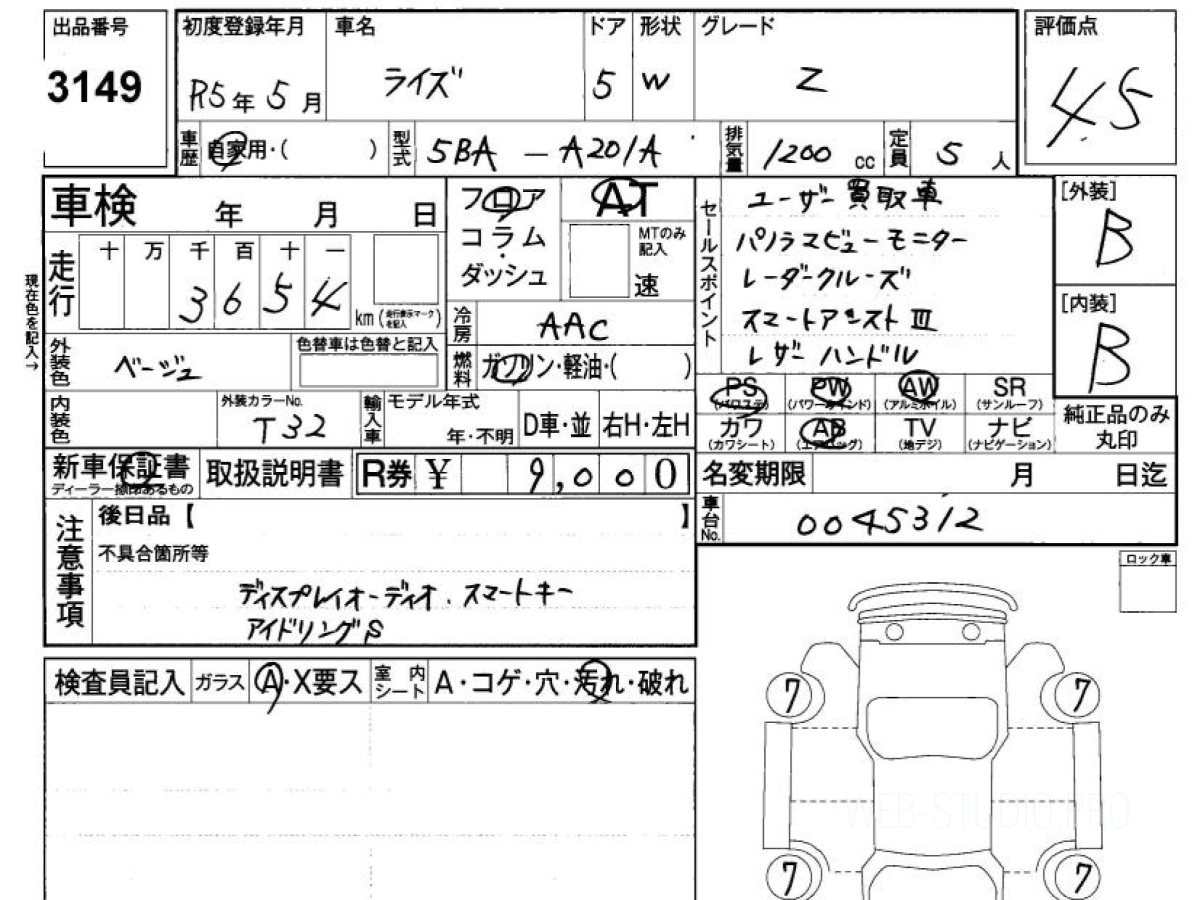 出品番号
3149
初度登録年月
R5年 5月
車名
ライズ
ドア
5
形状
W
グレード
Z
評価点
4.5
車歴
自家用・( )
型式
5BA - A201A
排気量
1200 cc
定員
5 人
車検 年 月 日
走行
十 万 千 百 十 一
3 6 5 4
km (走行表示マークを記入)
現在色を記入→
フロア
コラム
ダッシュ
AT
MTのみ記入
速
冷房
AAC
燃料
ガソリン・軽油・( )
セールスポイント
ユーザー買取車
パノラマビューモニター
レーダークルーズ
スマートアシストⅢ
レザーハンドル
[外装]
B
[内装]
B
外装色
ベージュ
色替車は色替と記入
内装色
外装カラーNo.
T32
輸入車
モデル年式
年・不明
D車・並
右H・左H
PS
(パワステ)
PW
(パワーウインド)
AW
(アルミホイル)
SR
(サンルーフ)
カワ
(カワシート)
AB
(エアバッグ)
TV
(地デジ)
ナビ
(ナビゲーション)
純正品のみ
丸印
新車保証書
ディーラー捺印あるもの
取扱説明書
R券 ¥ 9,000
名変期限 月 日迄
車台No.
0045312
注意事項
後日品【 】
不具合箇所等
ディスプレイオーディオ.スマートキー
アイドリングS
ロック車
検査員記入
ガラス
A・X要ス
室内シート
A・コゲ・穴・汚れ・破れ
7
7
7
7
WEB-STUDIO.PRO